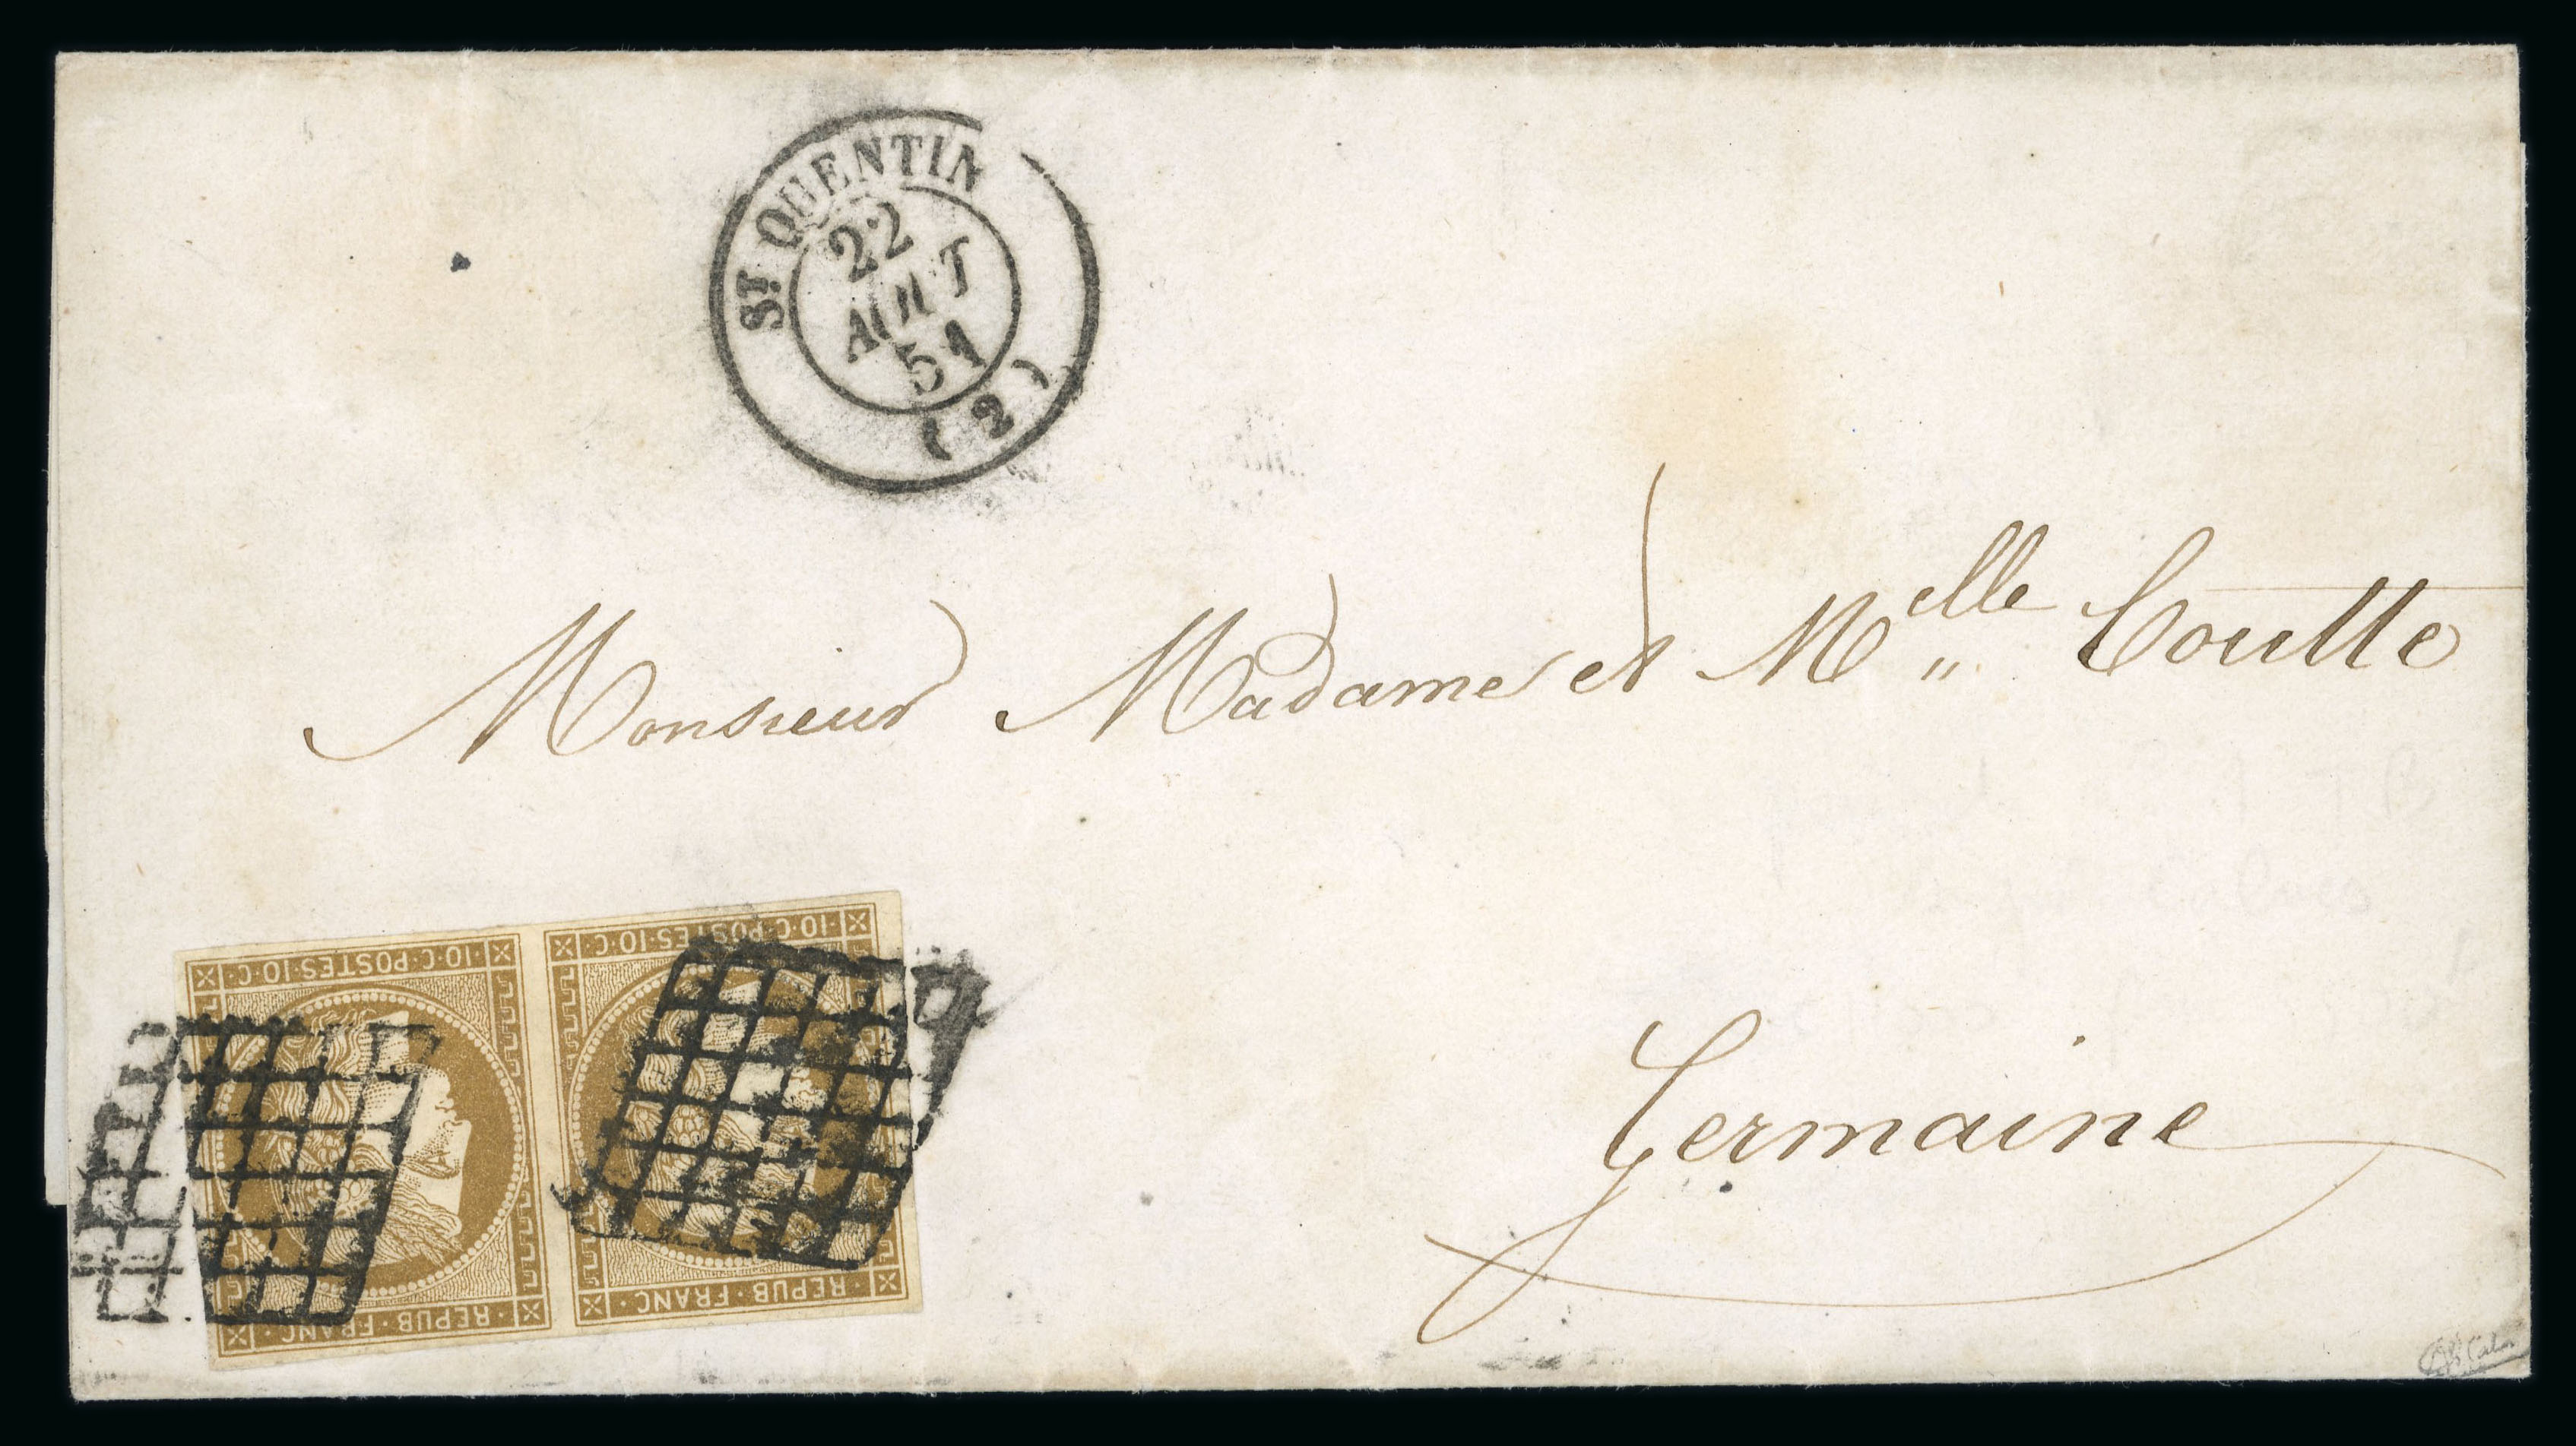 St QUENTIN
22
AOUT
51
(2)
Monsieur Madame et Melle Coutte
Germaine
10·C·POSTES·10·C
REPUB·FRANC·
10·C·POSTES·10·C
REPUB·FRANC·